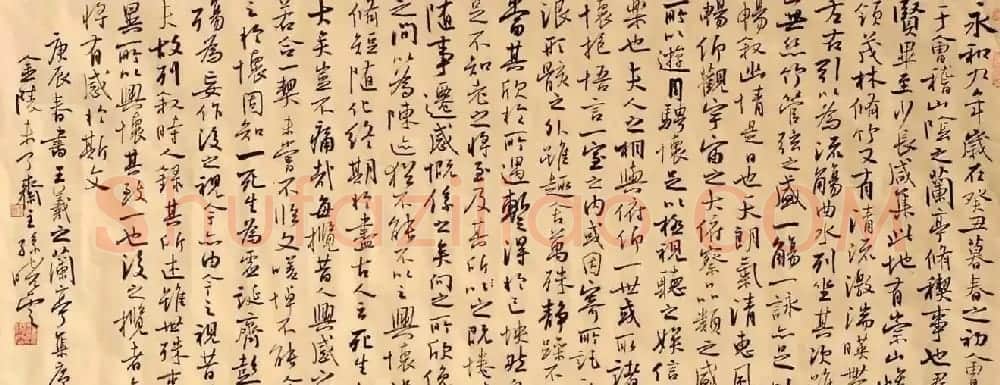 永和九年歲在癸丑暮春之初會
于會稽山陰之蘭亭脩禊事也羣
賢畢至少長咸集此地有崇山峻
領茂林脩竹又有清流激湍暎帶
左右引以為流觴曲水列坐其次雖
無絲竹管弦之盛一觴一詠亦足以
暢敘幽情是日也天朗氣清惠風
暢仰觀宇宙之大俯察品類之盛
所以遊目騁懷足以極視聽之娛信
樂也夫人之相與俯仰一世或取諸
懷抱悟言一室之內或因寄所託
浪形骸之外雖趣舍萬殊靜躁不
當其欣於所遇暫得於己怏然
足不知老之將至及其所之既惓
隨事遷感慨係之矣向之所欣俛
之間以為陳迹猶不能不以之興懷
脩短隨化終期於盡古人云死生
大矣豈不痛哉每攬昔人興感之
若合一契未嘗不臨文嗟悼不能
之於懷固知一死生為虛誕齊彭
殤為妄作後之視今亦由今之視昔
夫故列敘時人錄其所述雖世殊事
異所以興懷其致一也後之攬者
將有感於斯文
庚辰春書王羲之蘭亭集序
金陵未了齋主孫曉雲
Shufaziliao.COM